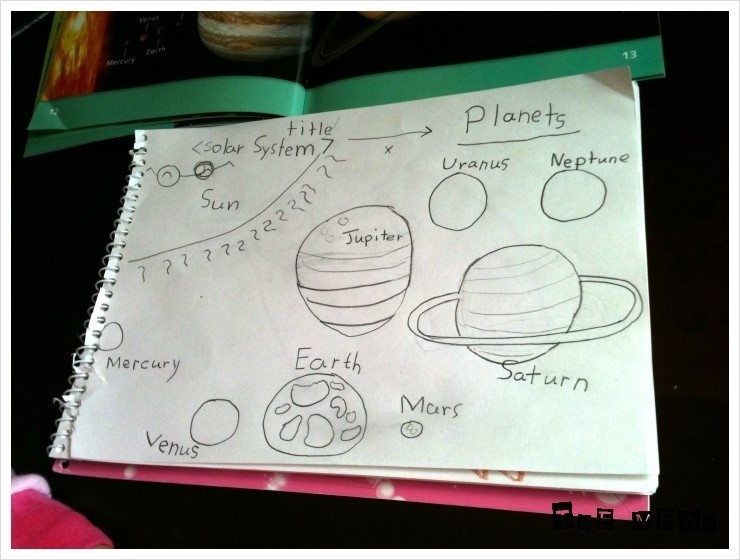 Venus
Mercury
Earth
12
13
title
<solar System>
x
Planets
Sun
Uranus
Neptune
Jupiter
Saturn
Mercury
Earth
Mars
Venus